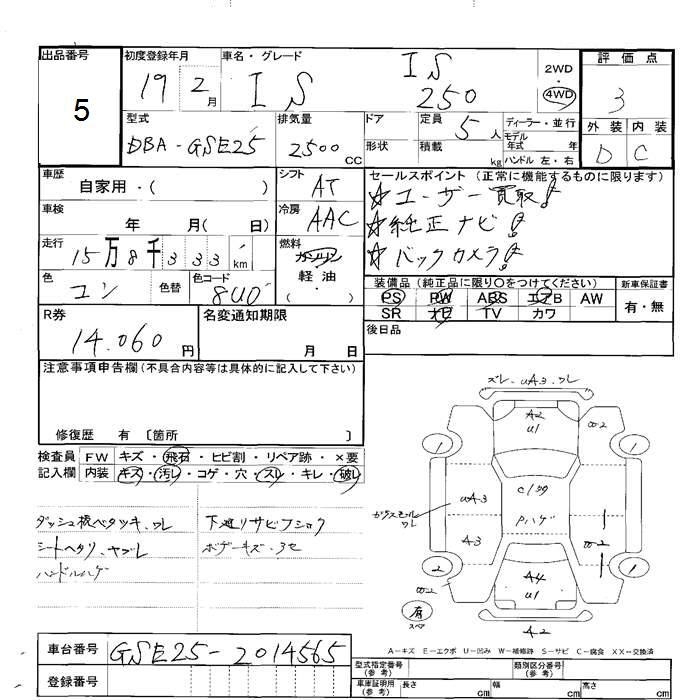 出品番号 初度登録年月 車名・グレード 評価点
5
19 2月
IS IS 250
2WD
4WD
3
型式 排気量 ドア 定員 ディーラー・並行 外装 内装
DBA-GSE25 2500 CC 形状 5人 モデル 年式 年
積載 kg ハンドル 左・右
D C
車歴 シフト セールスポイント (正常に機能するものに限ります)
自家用・( ) AT
☆ユーザー買取!
車検 冷房
年 月( 日) AAC
☆純正ナビ!
走行 燃料
15万8千333km ガソリン
☆バックカメラ!
色 色替 色コード 軽油
コン 8U0 ・( )
装備品 (純正品に限り○をつけてください) 新車保証書
PS PW ABS エアB AW 有・無
SR ナビ TV カワ
R券 名変通知期限 後日品
14.060円 月 日
注意事項申告欄 (不具合内容等は具体的に記入して下さい)
修復歴 有 〔箇所 〕
検査員 FW キズ・飛石・ヒビ割・リペア跡・×要
記入欄 内装 キズ・汚レ・コゲ・穴・スレ・キレ・破レ
ダッシュ板ベタツキ、ワレ 下廻りサビフショク
シートヘタリ、ヤブレ ボデーキズ・
ハンドルハゲ
ズレ・UA3・ワレ
A2
U1
1 1
Pハゲ
UA3
ワレ
A3
2 1
A4
U1
有
スペア
A2
A-キズ E-エクボ U-凹み W-補修跡 S-サビ C-腐食 XX-交換済
車台番号 GSE25-2014565
登録番号
型式指定番号 (参考) 類別区分番号 (参考)
車庫証明用 (参考) 長さ cm 幅 cm 高さ cm